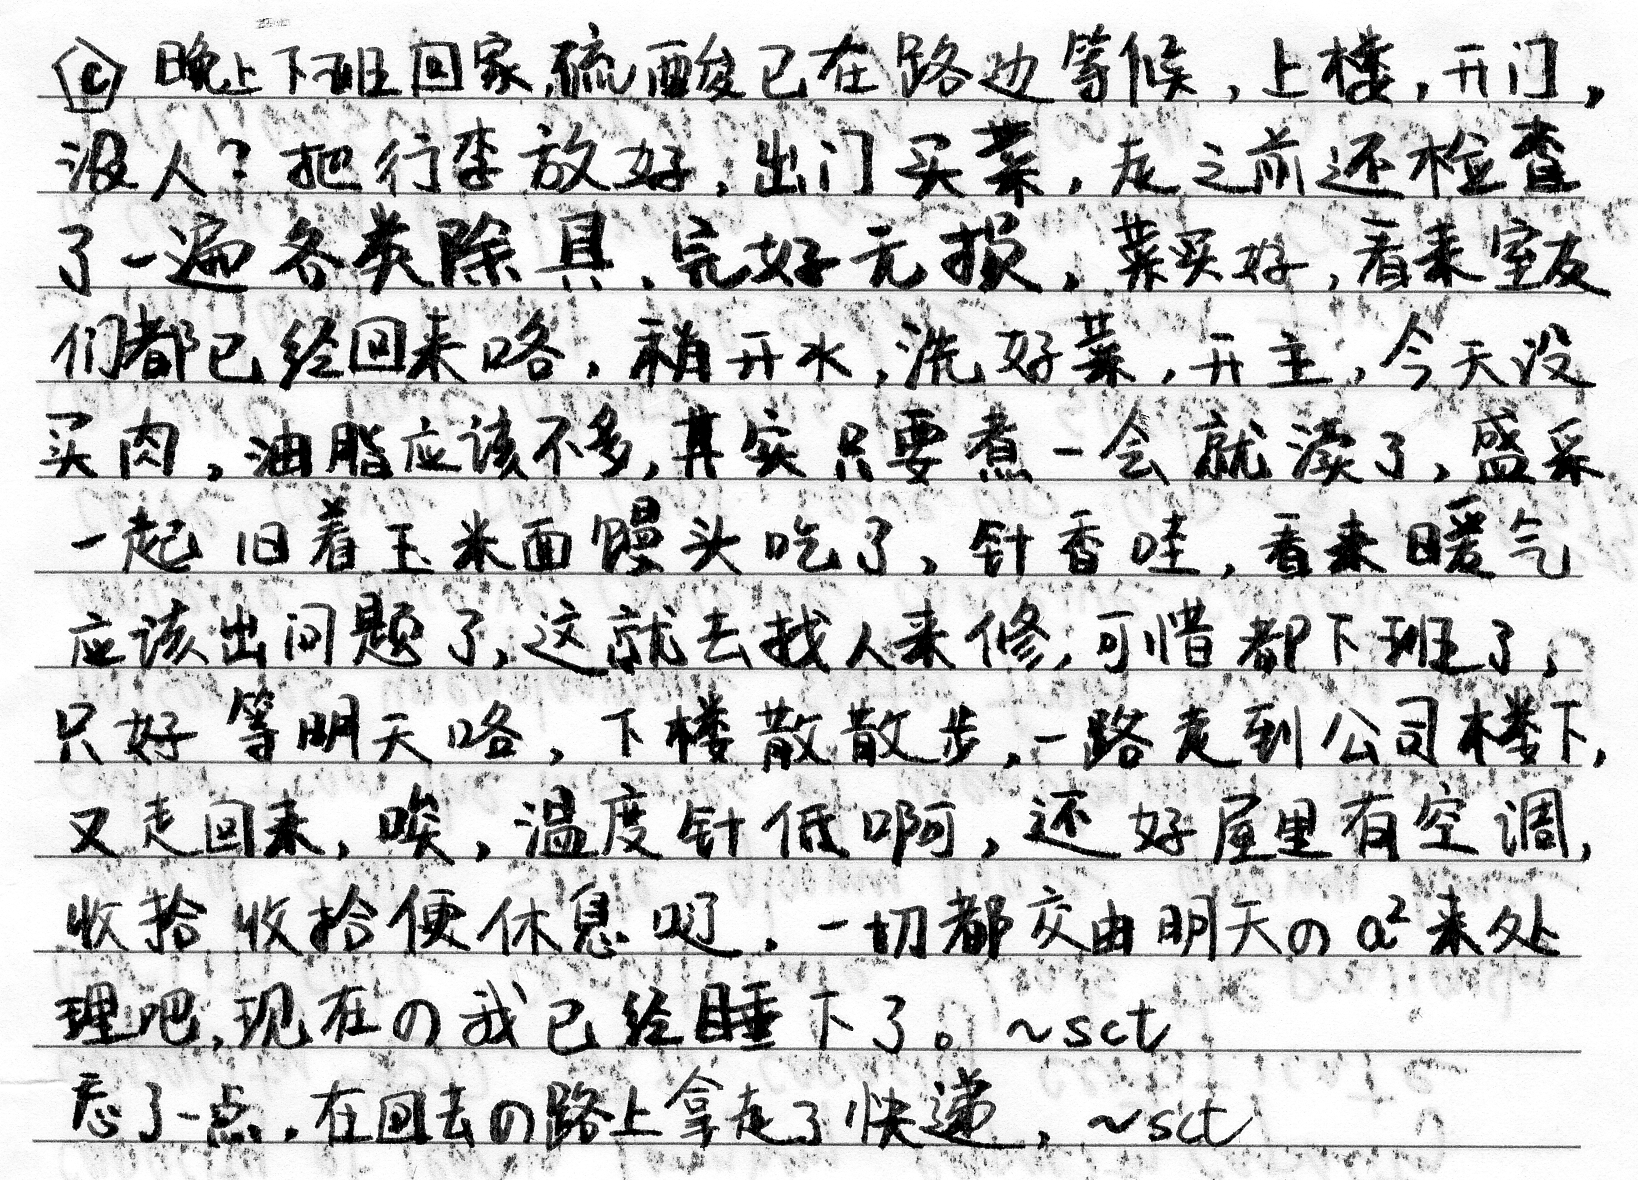 C 晚上下班回家,硫酸已在路边等候,上楼,开门,
没人?把行李放好,出门买菜,走之前还检查
了一遍各类除具,完好无损,菜买好,看来室友
们都已经回来咯,稍开水,洗好菜,开主,今天没
买肉,油脂应该不多,其实只要煮一会就渎了,盛采
一起旧着玉米面馒头吃了,针香哇,看来暖气
应该出问题了,这就去找人来修,可惜都下班了,
只好等明天咯,下楼散散步,一路走到公司楼下,
又走回来,唉,温度针低啊,还好屋里有空调,
收拾收拾便休息吧,一切都交由明天の a²来处
理吧,现在の我已经睡下了。~sct
忘了一点,在回去の路上拿走了快递,~sct